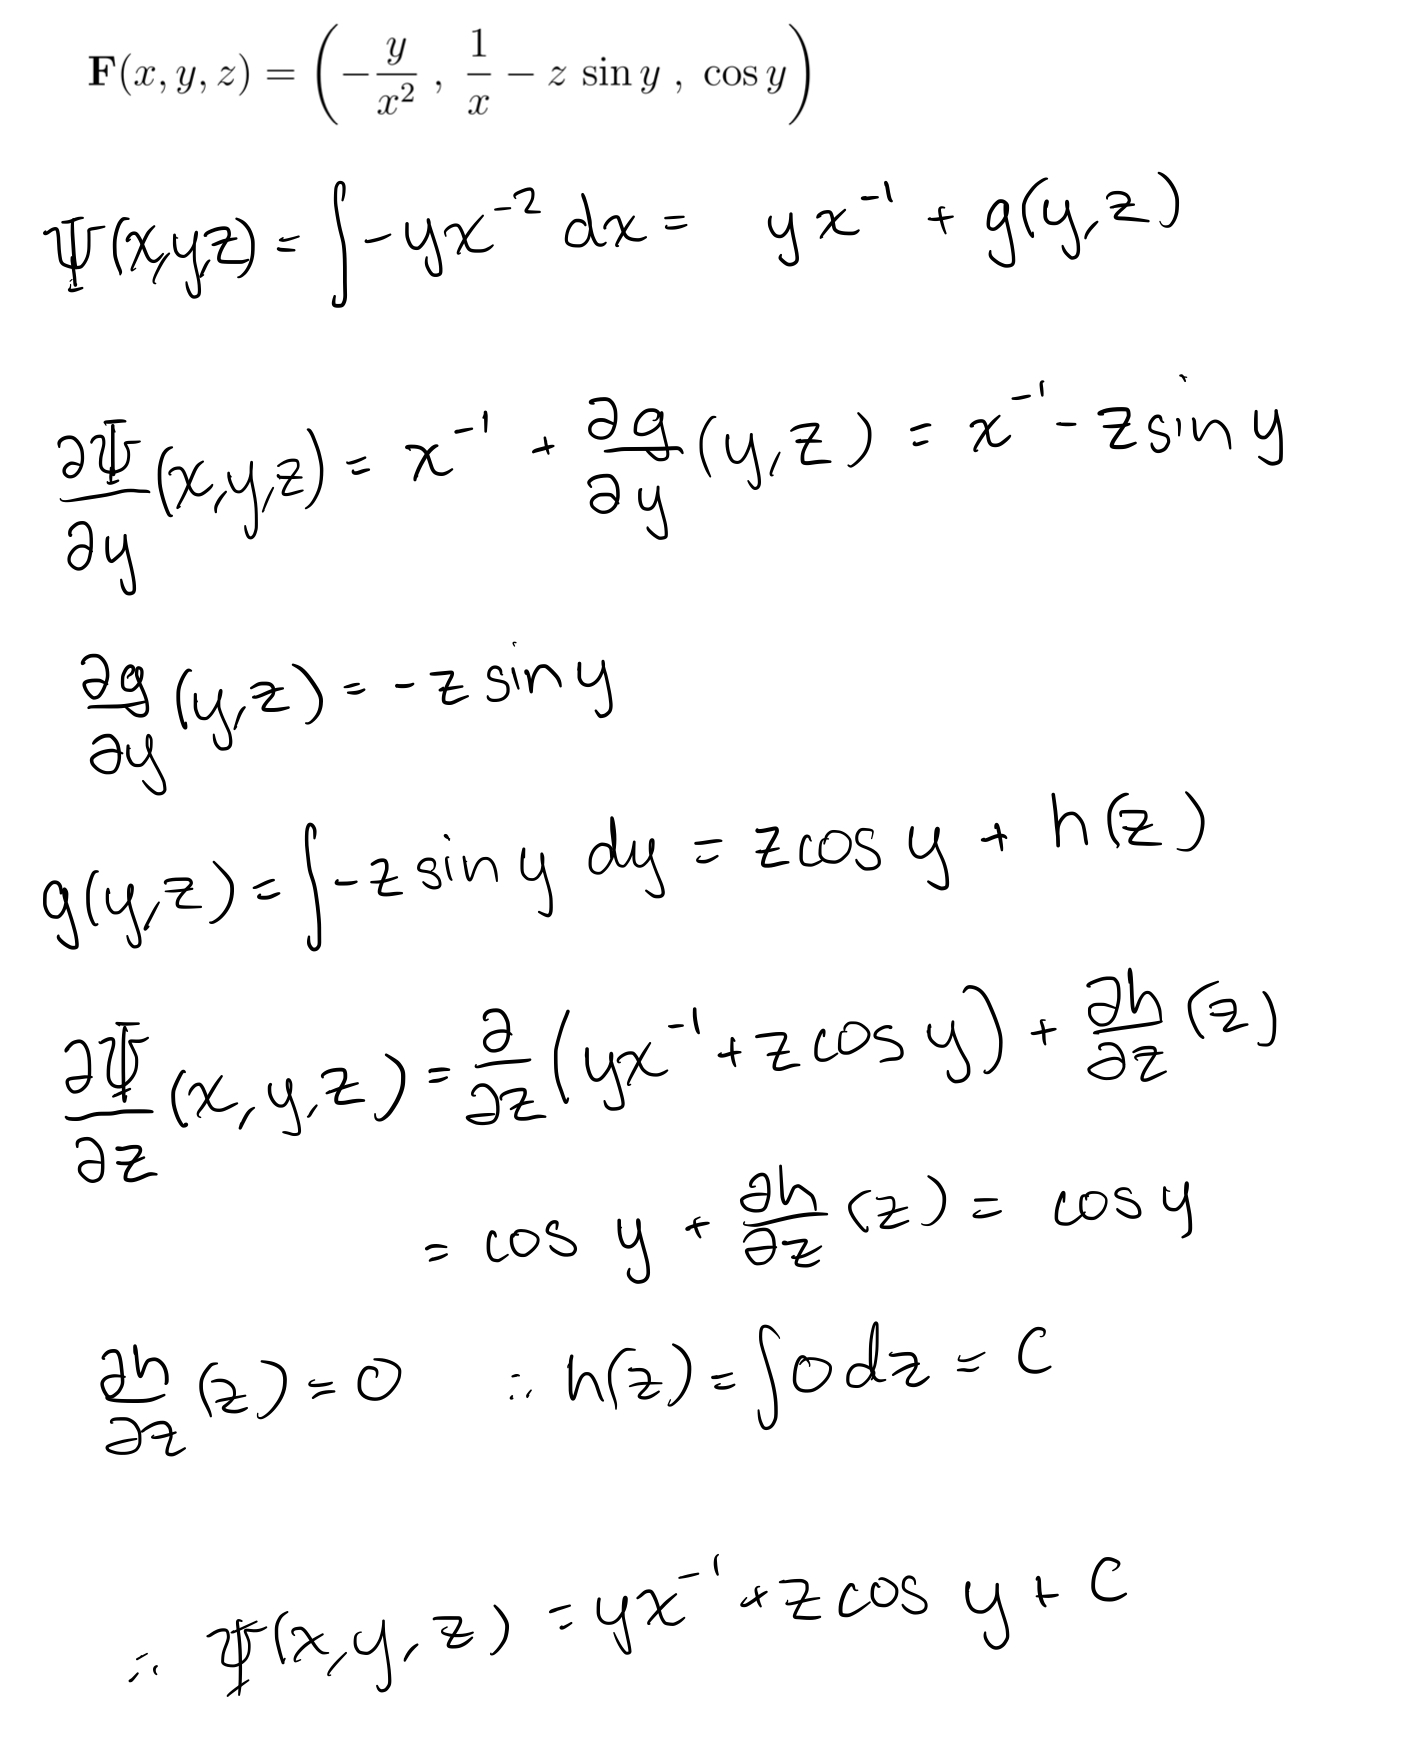 F(x, y, z) = ( −y/x² , 1/x − z sin y , cos y )
Ψ(x,y,z) = ∫ −yx⁻² dx = yx⁻¹ + g(y,z)
∂Ψ/∂y (x,y,z) = x⁻¹ + ∂g/∂y (y,z) = x⁻¹ − z sin y
∂g/∂y (y,z) = −z sin y
g(y,z) = ∫ −z sin y dy = z cos y + h(z)
∂Ψ/∂z (x,y,z) = ∂/∂z (yx⁻¹ + z cos y) + ∂h/∂z (z)
= cos y + ∂h/∂z (z) = cos y
∂h/∂z (z) = 0 ∴ h(z) = ∫ 0 dz = C
∴ Ψ(x,y,z) = yx⁻¹ + z cos y + C